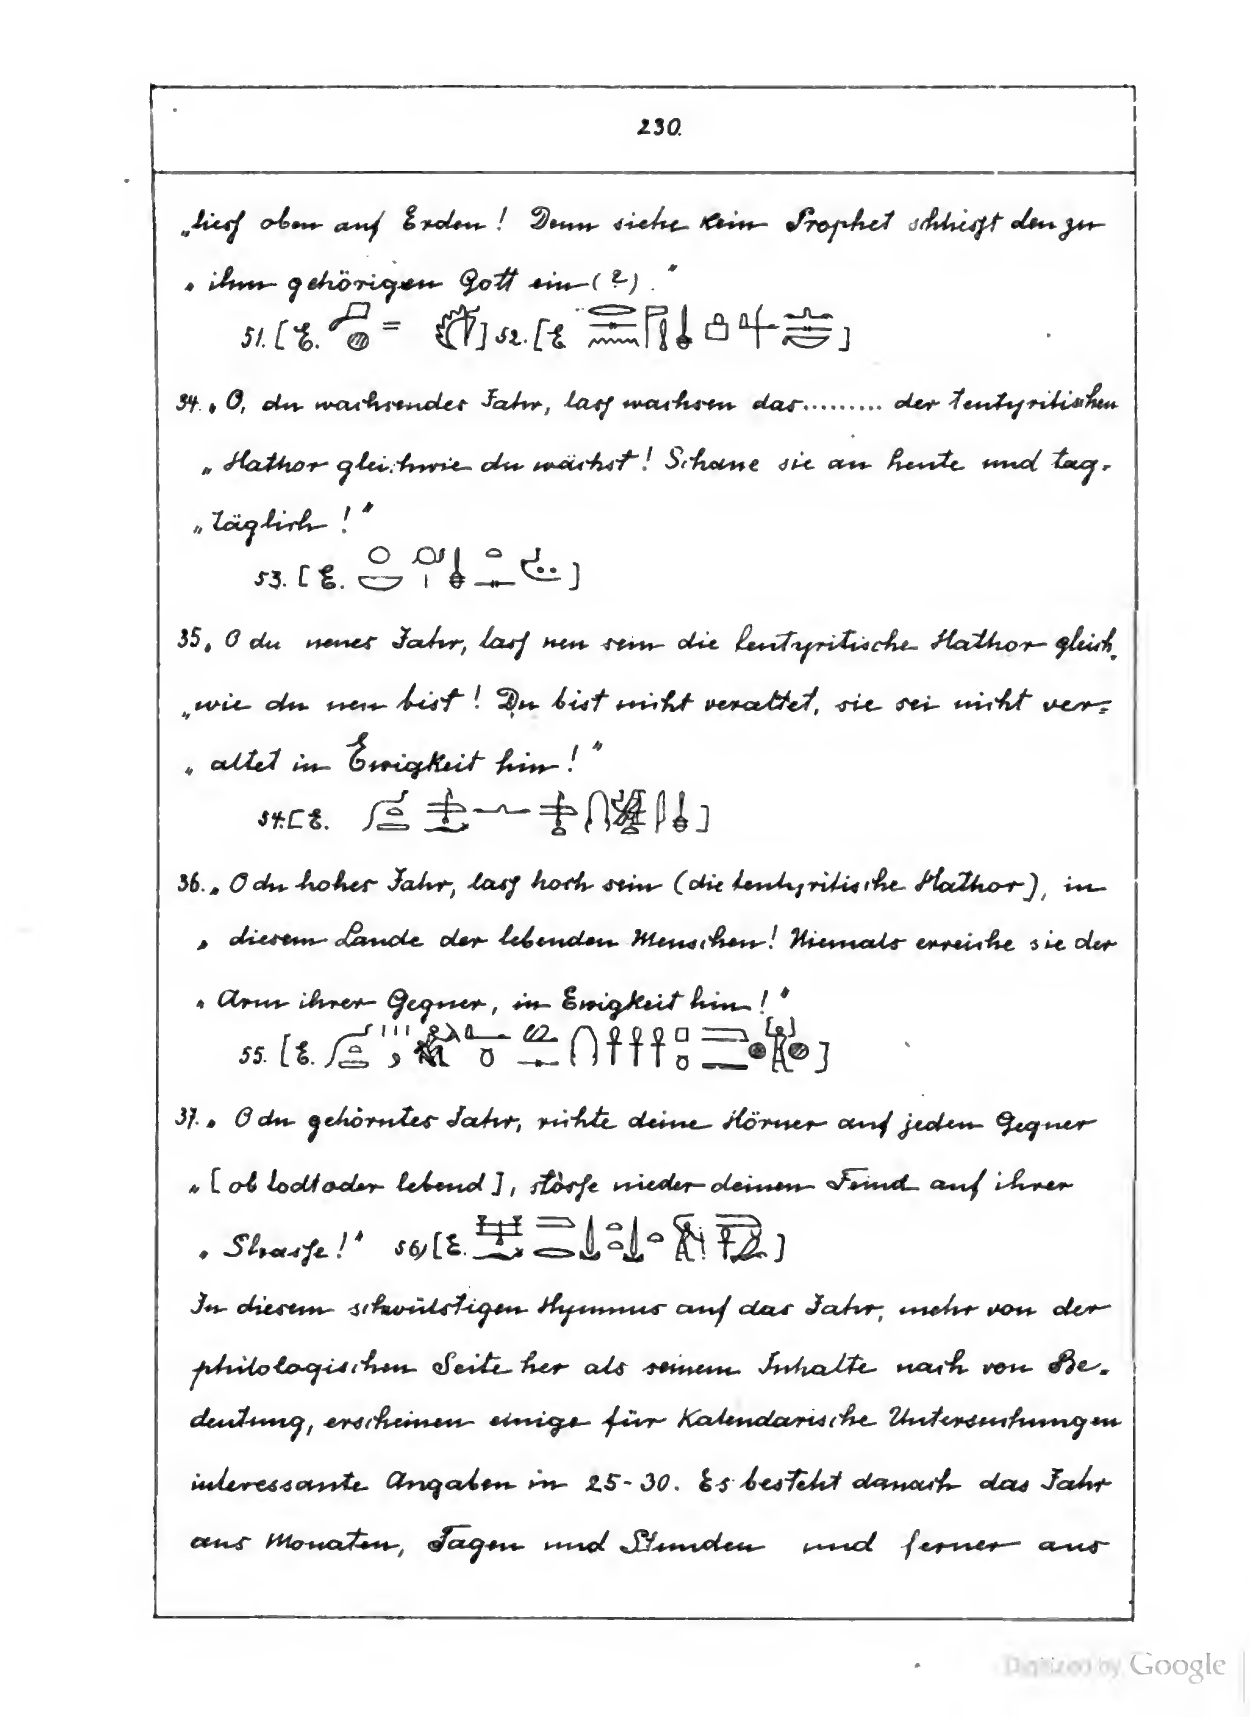 230.
„tief oben auf Erden! Denn siehe kein Prophet schliefst den zu
„ ihm gehörigen Gott ein (?)."
51. [E. = ] 52. [E ]
34. „O, du wachsendes Jahr, lass wachsen das......... der tentyritischen
„ Hathor gleichwie du wächst! Schaue sie an heute und tag-
„täglich!"
53. [E. ]
35. „O du neues Jahr, lass neu sein die tentyritische Hathor gleich-
„wie du neu bist! Du bist nicht veraltet, sie sei nicht ver=
„ altet in Ewigkeit hin!"
54. [E. ]
36. „O du hohes Jahr, lass hoch sein (die tentyritische Hathor), in
„ diesem Lande der lebenden Menschen! Niemals erreiche sie der
„ Arm ihrer Gegner, in Ewigkeit hin!"
55. [E. ]
37. „O du gehörntes Jahr, richte deine Hörner auf jeden Gegner
„ [ob todt oder lebend], stosse nieder deinen Feind auf ihrer
„ Strasse!" 56) [E. ]
In diesem schwülstigen Hymnus auf das Jahr, mehr von der
philologischen Seite her als seinem Inhalte nach von Be-
deutung, erscheinen einige für kalendarische Untersuchungen
interessante Angaben in 25-30. Es besteht danach das Jahr
aus Monaten, Tagen und Stunden und ferner aus
Digitized by Google